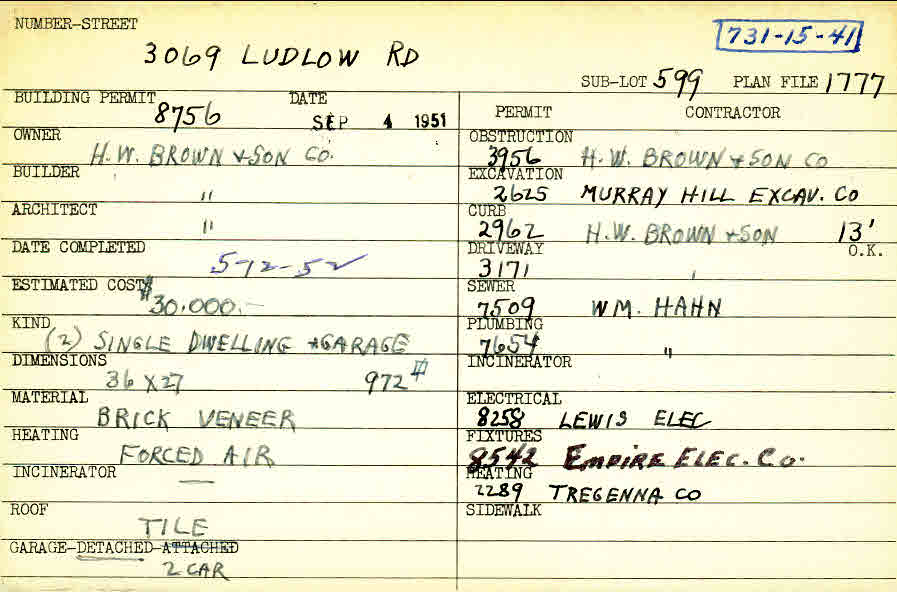 NUMBER-STREET
3069 LUDLOW RD
731-15-41
SUB-LOT 599 PLAN FILE 1777
BUILDING PERMIT 8756 DATE SEP 4 1951
OWNER H.W. BROWN + SON CO.
BUILDER "
ARCHITECT "
DATE COMPLETED 5-12-52
ESTIMATED COST $30.000.-
KIND (2) SINGLE DWELLING + GARAGE
DIMENSIONS 36 X 27 972 #
MATERIAL BRICK VENEER
HEATING FORCED AIR
INCINERATOR —
ROOF TILE
GARAGE-DETACHED-ATTACHED
2 CAR
PERMIT CONTRACTOR
OBSTRUCTION
3956 H.W. BROWN + SON CO
EXCAVATION
2625 MURRAY HILL EXCAV. CO
CURB
2962 H.W. BROWN + SON 13'
O.K.
DRIVEWAY
3171 '
SEWER
7509 WM. HAHN
PLUMBING
7654 "
INCINERATOR
ELECTRICAL
8258 LEWIS ELEC
FIXTURES
8542 EMPIRE ELEC. CO.
HEATING
2289 TREGENNA CO
SIDEWALK